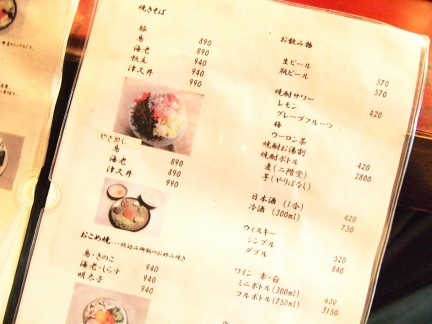 焼きそば
豚 890
鳥 890
海老 940
帆立 940
津久井 990
やきめし
鳥 890
海老 890
津久井 990
おこめ焼・・・・炊込み御飯のお好み焼き
鳥・きのこ 940
海老・しらす 940
明太子 940
お飲み物
生ビール 570
瓶ビール 570
焼酎サワー
レモン 420
グレープフルーツ
梅
ウーロン茶
焼酎お湯割 420
焼酎ボトル 2800
麦(二階堂)
芋(やりばなし)
日本酒 (1合) 420
冷酒 (300ml) 730
ウィスキー
シングル 520
ダブル 840
ワイン 赤・白
ミニボトル(300ml) 630
フルボトル(750ml) 3150